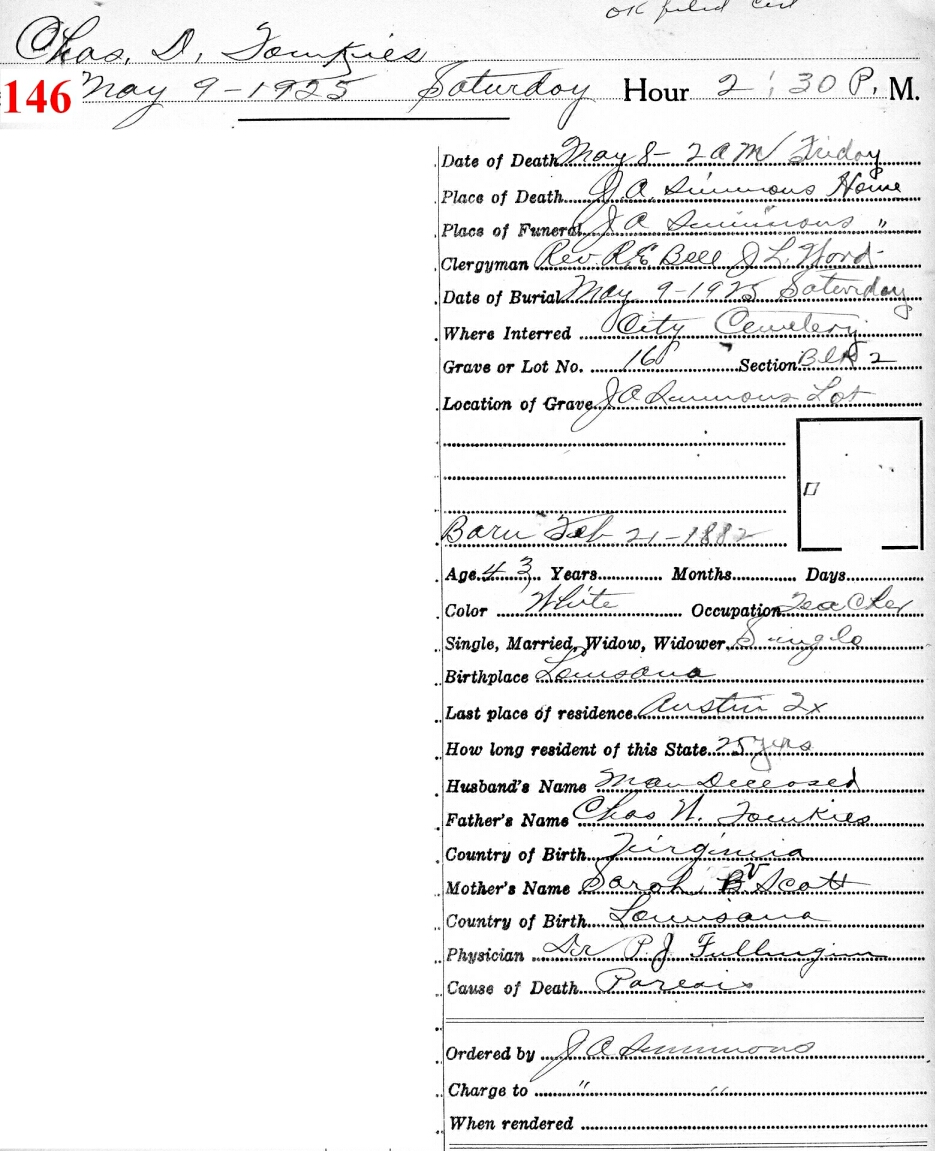 OK filed
Chas. D. Towkies
146 May 9-1925 Saturday Hour 2:30 P. M.
Date of Death May 8- 2 a m Friday
Place of Death J A Simmons Home
Place of Funeral J A Simmons "
Clergyman Rev. R.E. Bell J L. Word
Date of Burial May 9-1925 Saturday
Where Interred City Cemetery
Grave or Lot No. 168 Section Blk 2
Location of Grave J A Simmons Lot
Born Feb 21-1882
Age 43 Years Months Days
Color White Occupation Teacher
Single, Married, Widow, Widower Single
Birthplace Lousana
Last place of residence Austin Tx
How long resident of this State 25 yrs
Husband's Name Deceased
Father's Name Chas W. Towkies
Country of Birth Virginia
Mother's Name Sarah V Scott
Country of Birth Lousana
Physician Dr P. J. Fullingim
Cause of Death
Ordered by J A Simmons
Charge to " "
When rendered